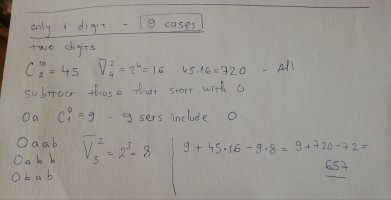 only 1 digit - 9 cases
two digits
C₂¹⁰ = 45  V̄₂⁴ = 2⁴ = 16  45.16 = 720 - All
subtract those that start with 0
0a  C₁⁹ = 9 - 9 sets include 0
0aab
0abb
0bab
V̄₃² = 2³ = 8
9 + 45.16 - 9.8 = 9 + 720 - 72 =
657